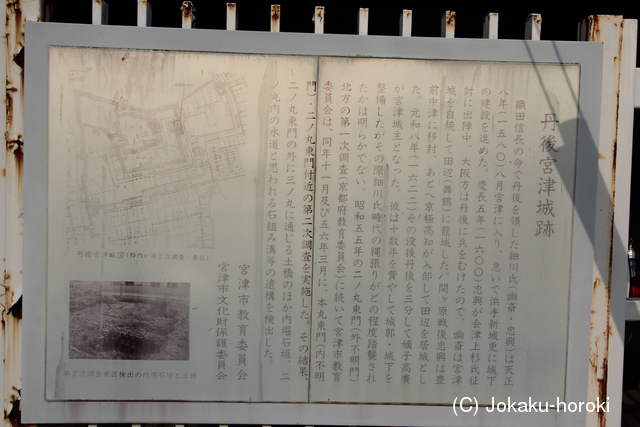 丹後宮津城跡
織田信長の命で丹後を領した細川氏(幽斎・忠興)は天正
八年(一五八〇)八月宮津に入り、急いで浜手新城更に城下
の建設を進めた。慶長五年(一六〇〇)忠興が会津上杉氏征
討に出陣中、大阪方は丹後に兵をむけたので、幽斎は宮津
城を自焼して田辺(舞鶴)に籠城した。関ヶ原戦後忠興は豊
前中津に移封、あとへ京極高知が入部して田辺を居城とし
た。元和八年(一六二二)その没後丹後を三分して嫡子高廣
が宮津城主となった。彼は十数年を費やして城郭・城下を
整備したがその際細川氏時代の縄張りがどの程度踏襲され
たかは明らかでない。昭和五五年の二ノ丸東門(外不明門)
北方の第一次調査(京都府教育委員会)に続いて宮津市教育
委員会は、同年十一月及び五六年三月に、本丸東門(内不明
門)・二ノ丸東門付近の第二次調査を実施した。その結果、
二ノ丸東門の外に三ノ丸に通じる土橋のほか内堀石垣、二
ノ丸内の水道と思われる石組み溝等の遺構を検出した。
宮津市教育委員会
宮津市文化財保護委員会
丹後宮津城図(枠内が第2次調査・東区)
第2次調査東区検出の内堀石垣と土橋
(C) Jokaku-horoki